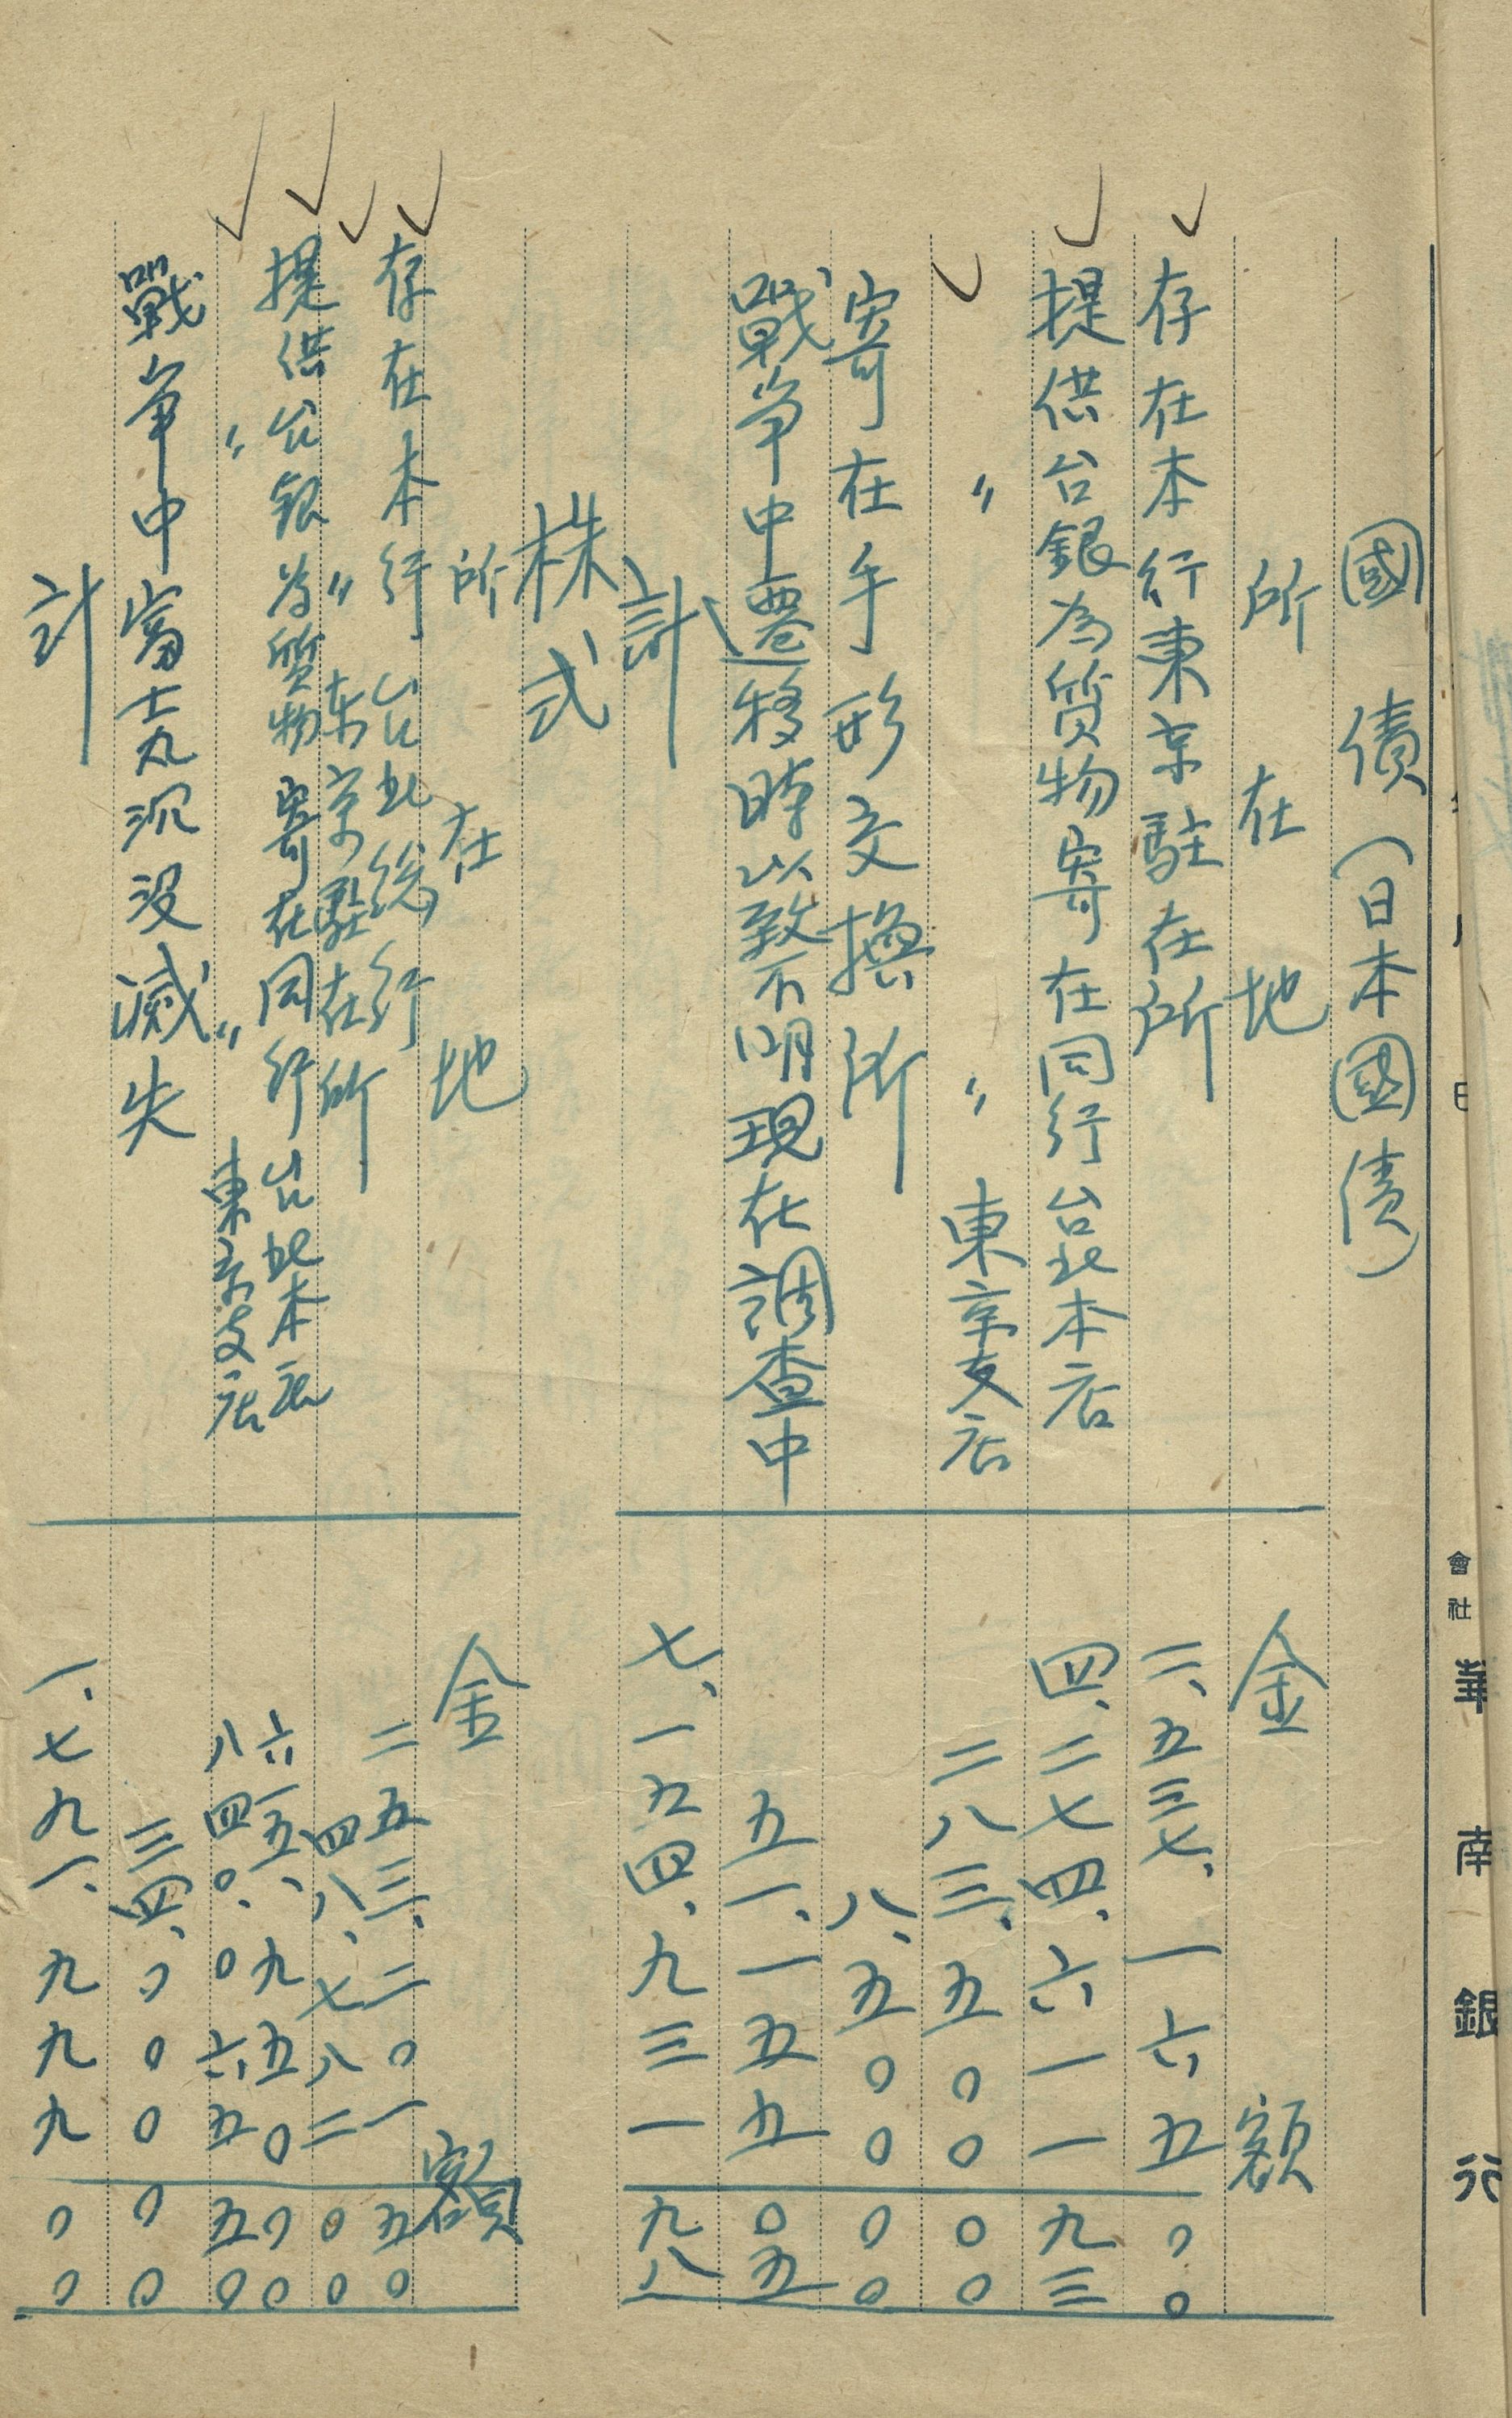 會社 華南銀行
國債（日本國債）
所在地 金額
存在本行東京駐在所 二、五三七、一六五〇〇
提供台銀為質物寄在同行台北本店 四、二七四、六一一九三
〃 〃 東京支店 二八三、五〇〇〇〇
寄在手形交換所 八、五〇〇〇〇
戰爭中遷移時以致不明現在調查中 五一、一五五〇五
計 七、一五四、九三一九八
株式
所在地 金額
存在本行台北總行 二五三、二〇一五〇
〃 東京駐在所 四八、七八二〇〇
提供台銀為質物寄在同行台北本店 六一五、九五〇〇〇
〃 〃 東京支店 八四〇、〇六五五〇
戰爭中富士丸沉没滅失 三四、〇〇〇〇〇
計 一、七九一、九九九〇〇